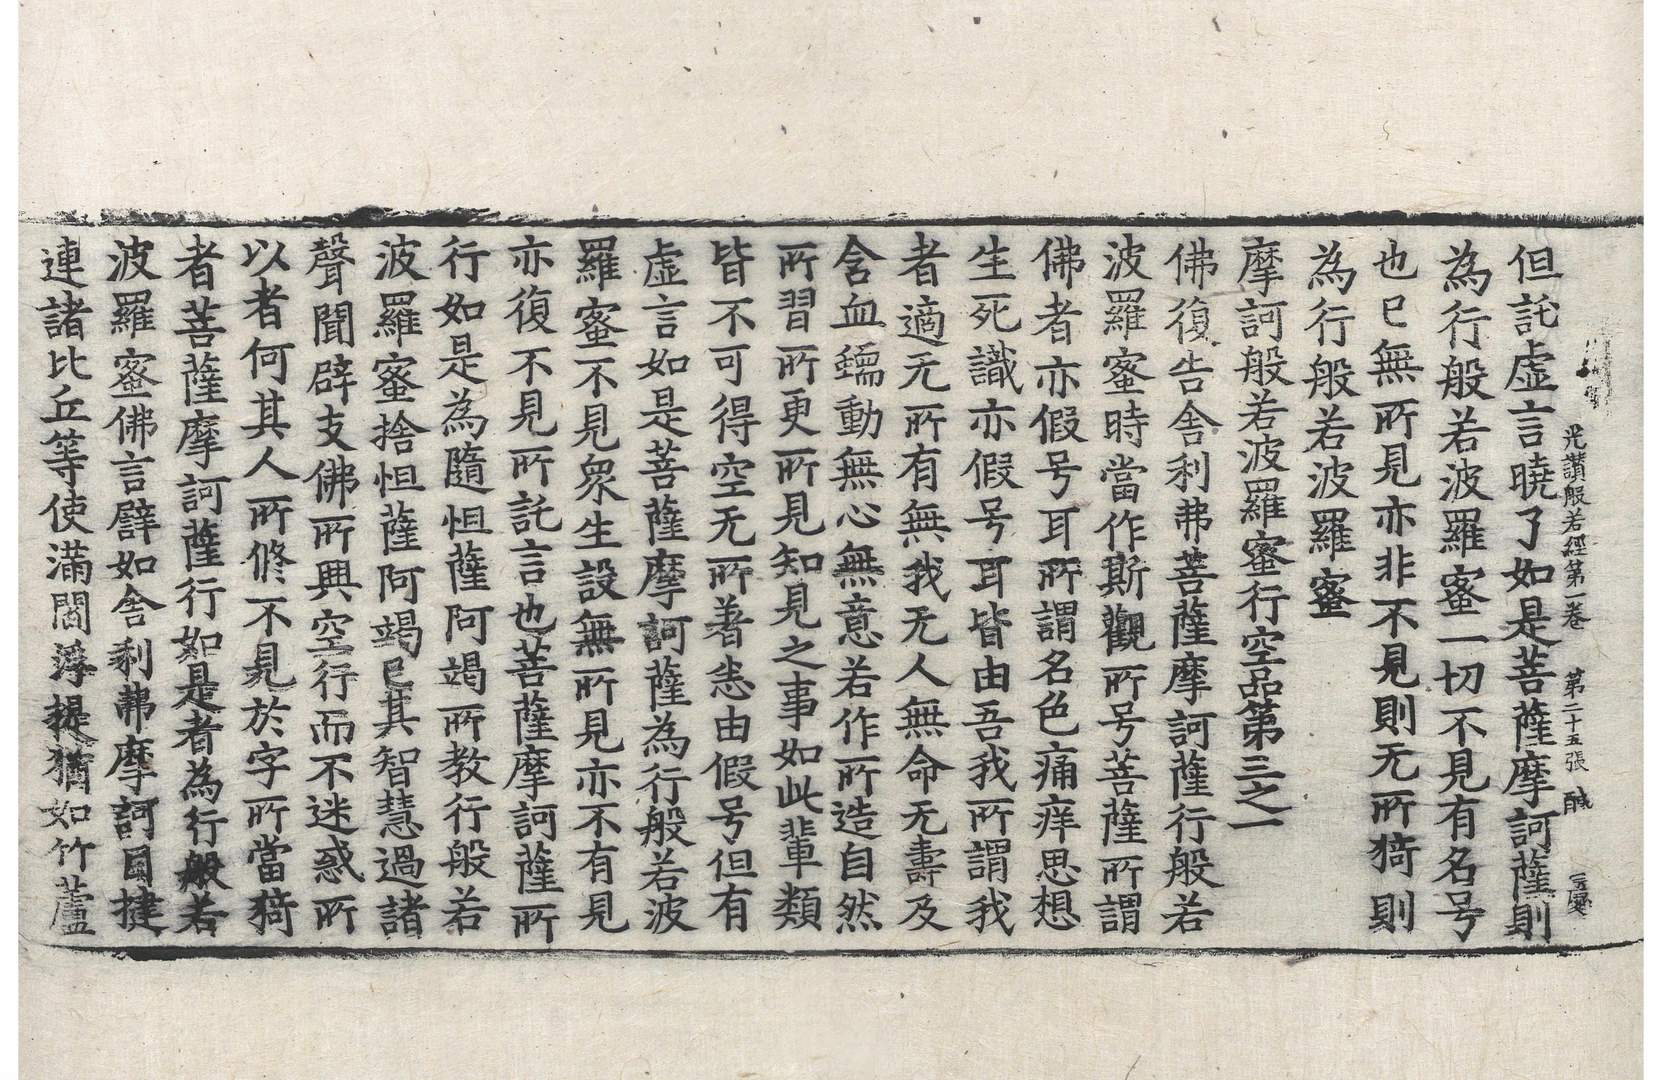 光讃般若經第一卷 第二十五張 醎
但託虛言曉了如是菩薩摩訶薩則
為行般若波羅蜜一切不見有名号
也已無所見亦非不見則无所猗則
為行般若波羅蜜
摩訶般若波羅蜜行空品第三之一
佛復告舍利弗菩薩摩訶薩行般若
波羅蜜時當作斯觀所号菩薩所謂
佛者亦假号耳所謂名色痛痒思想
生死識亦假号耳皆由吾我所謂我
者適无所有無我无人無命无壽及
含血蠕動無心無意若作所造自然
所習所更所見知見之事如此輩類
皆不可得空无所著恙由假号但有
虛言如是菩薩摩訶薩為行般若波
羅蜜不見衆生設無所見亦不有見
亦復不見所託言也菩薩摩訶薩所
行如是為隨怛薩阿竭所教行般若
波羅蜜捨怛薩阿竭已其智慧過諸
聲聞辟支佛所興空行而不迷惑所
以者何其人所修不見於字所當猗
者菩薩摩訶薩行如是者為行般若
波羅蜜佛言譬如舍利弗摩訶目揵
連諸比丘等使滿閻浮提猶如竹蘆